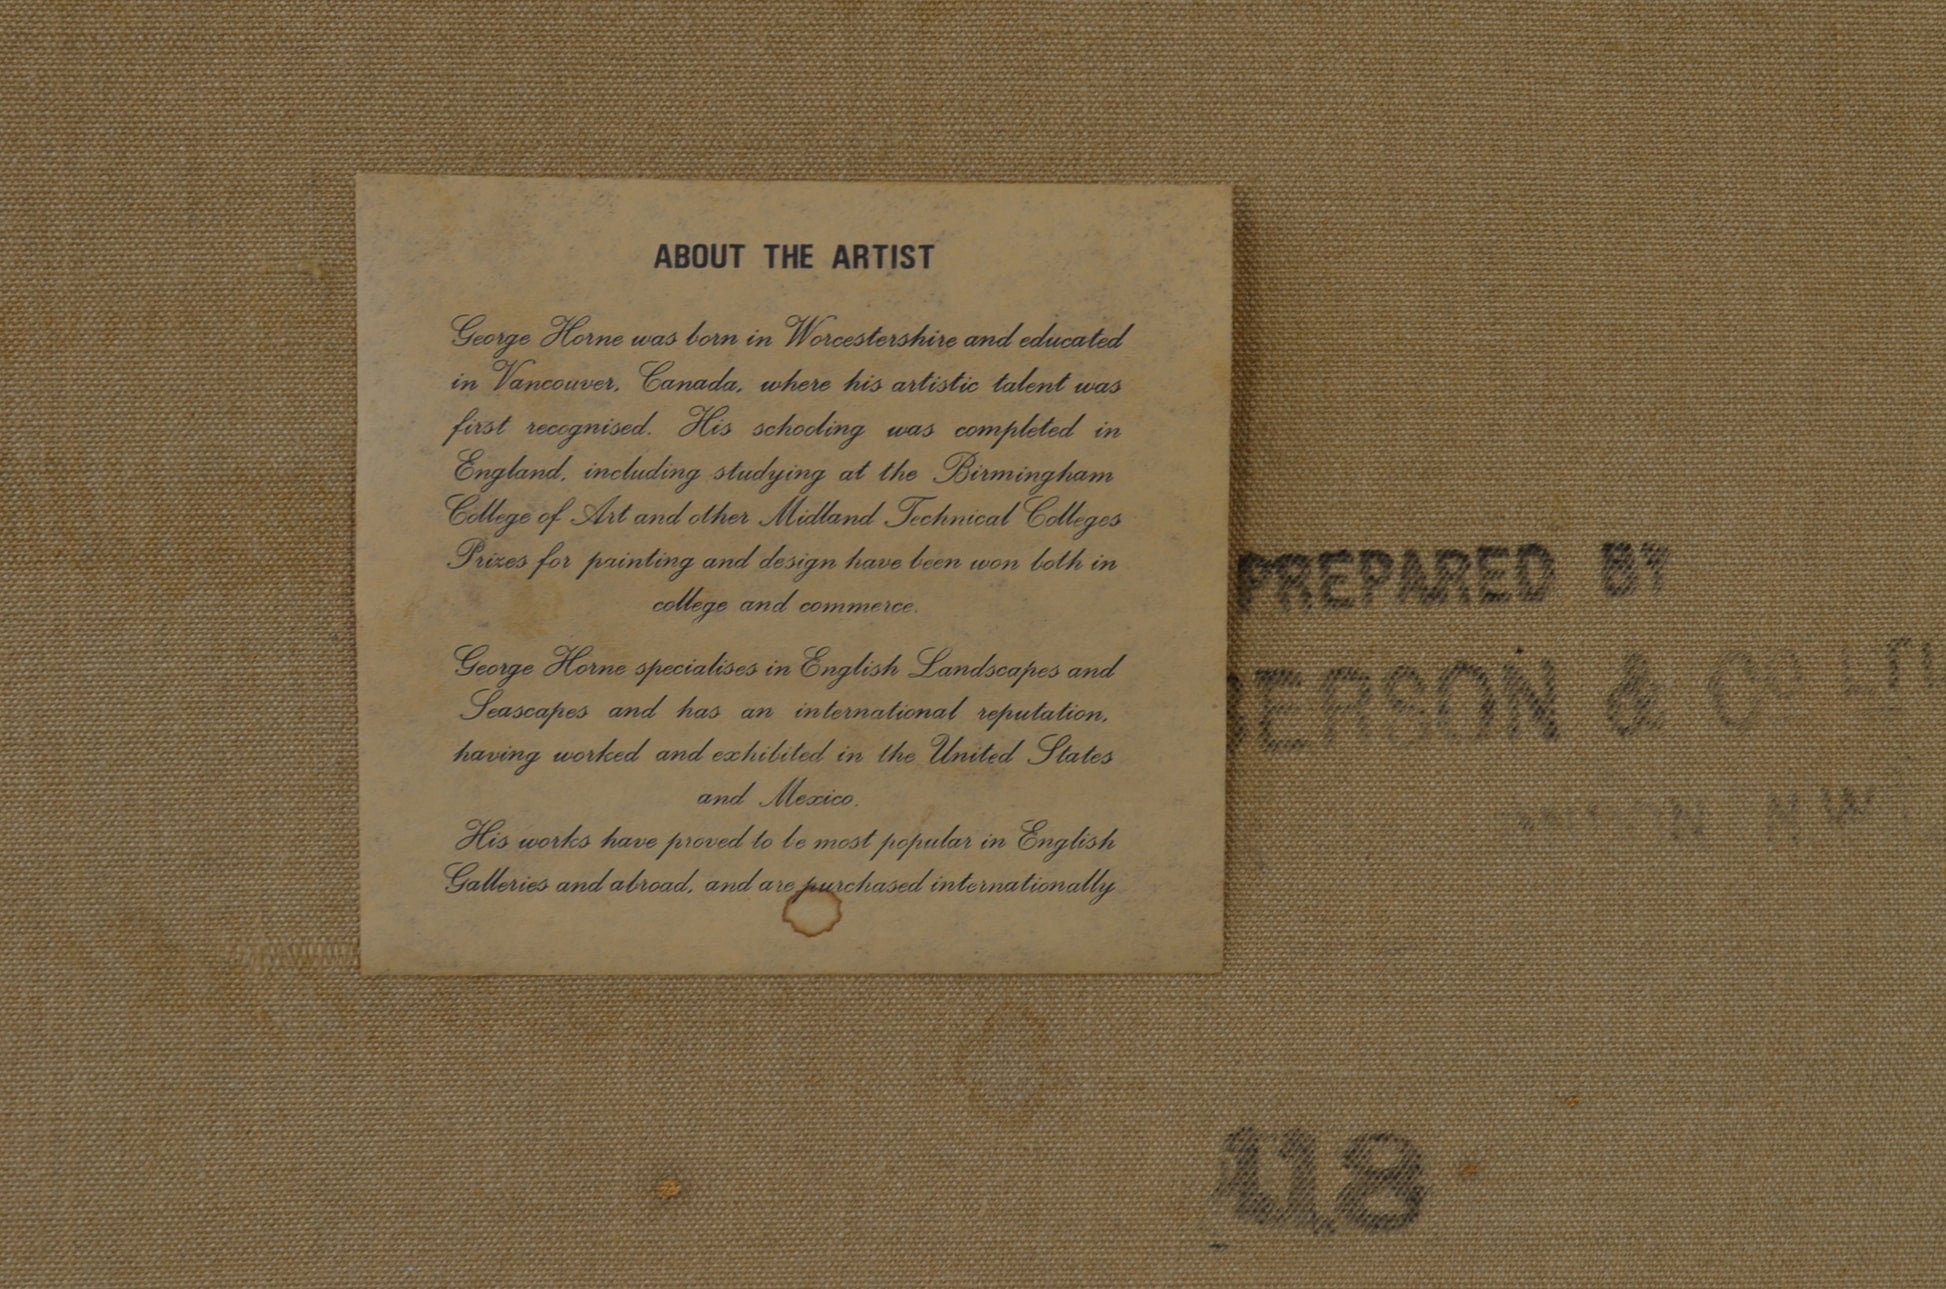 ABOUT THE ARTIST
George Horne was born in Worcestershire and educated
in Vancouver, Canada, where his artistic talent was
first recognised. His schooling was completed in
England, including studying at the Birmingham
College of Art and other Midland Technical Colleges
Prizes for painting and design have been won both in
college and commerce.
George Horne specialises in English Landscapes and
Seascapes and has an international reputation,
having worked and exhibited in the United States
and Mexico.
His works have proved to be most popular in English
Galleries and abroad, and are purchased internationally
PREPARED BY
ERSON & Co LTD
N.W.